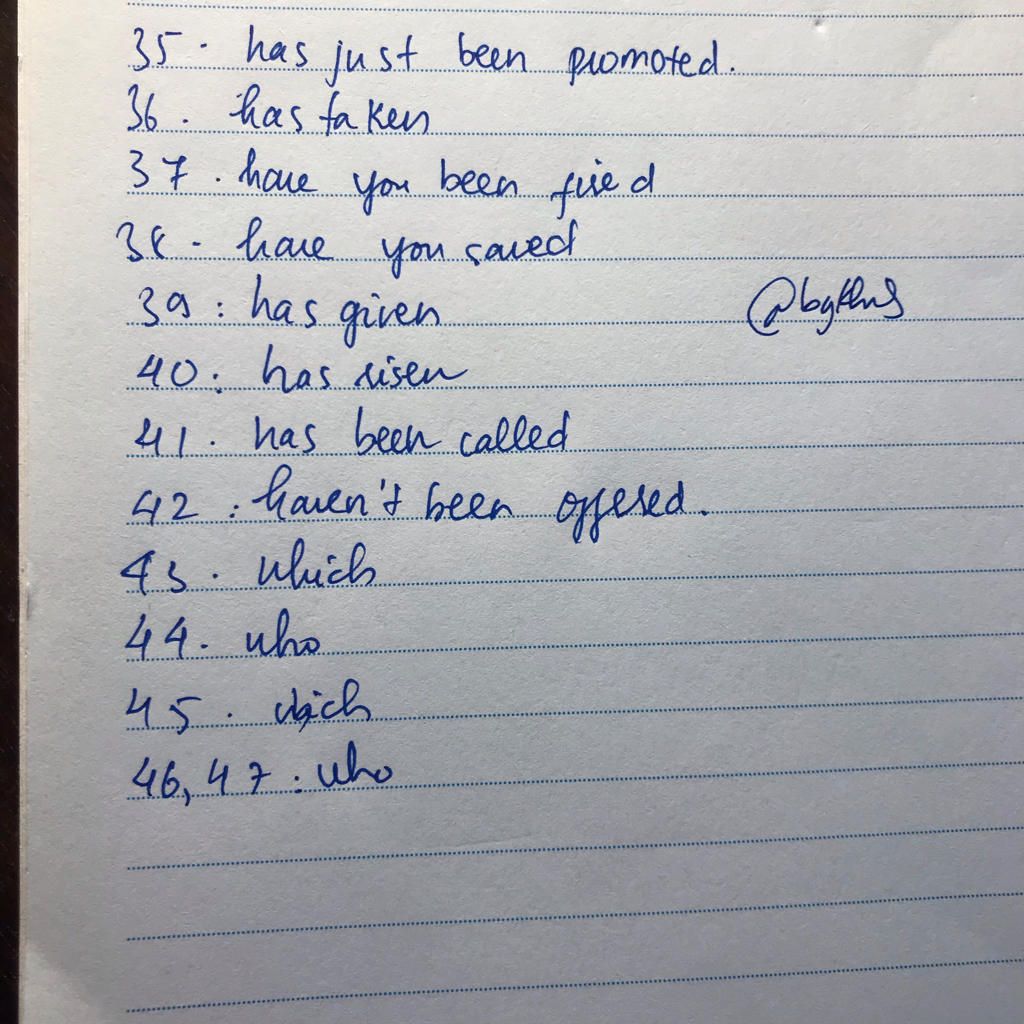 35. has just been promoted.
36. has taken
37. have you been fired
38. have you saved
39: has given
40: has risen
41. has been called
42: haven't been offered.
43. which
44. who
45. which
46, 47: who